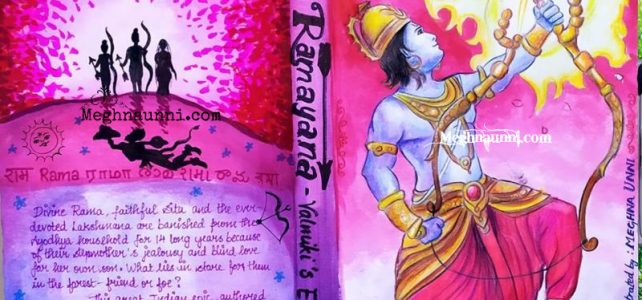 Meghnaunni.com
राम Rama ராமா
Divine Rama, faithful Sita and the ever-
devoted Lakshmana are banished from the
Ayodhya household for 14 long years because
of their stepmother's jealousy and blind love
for her own son. What lies in store for them
in the forest - friend or foe?
This great Indian epic, authored
Ramayana - Valmiki's E
Meghnaunni.com
trated by : MEGHNA UNNI